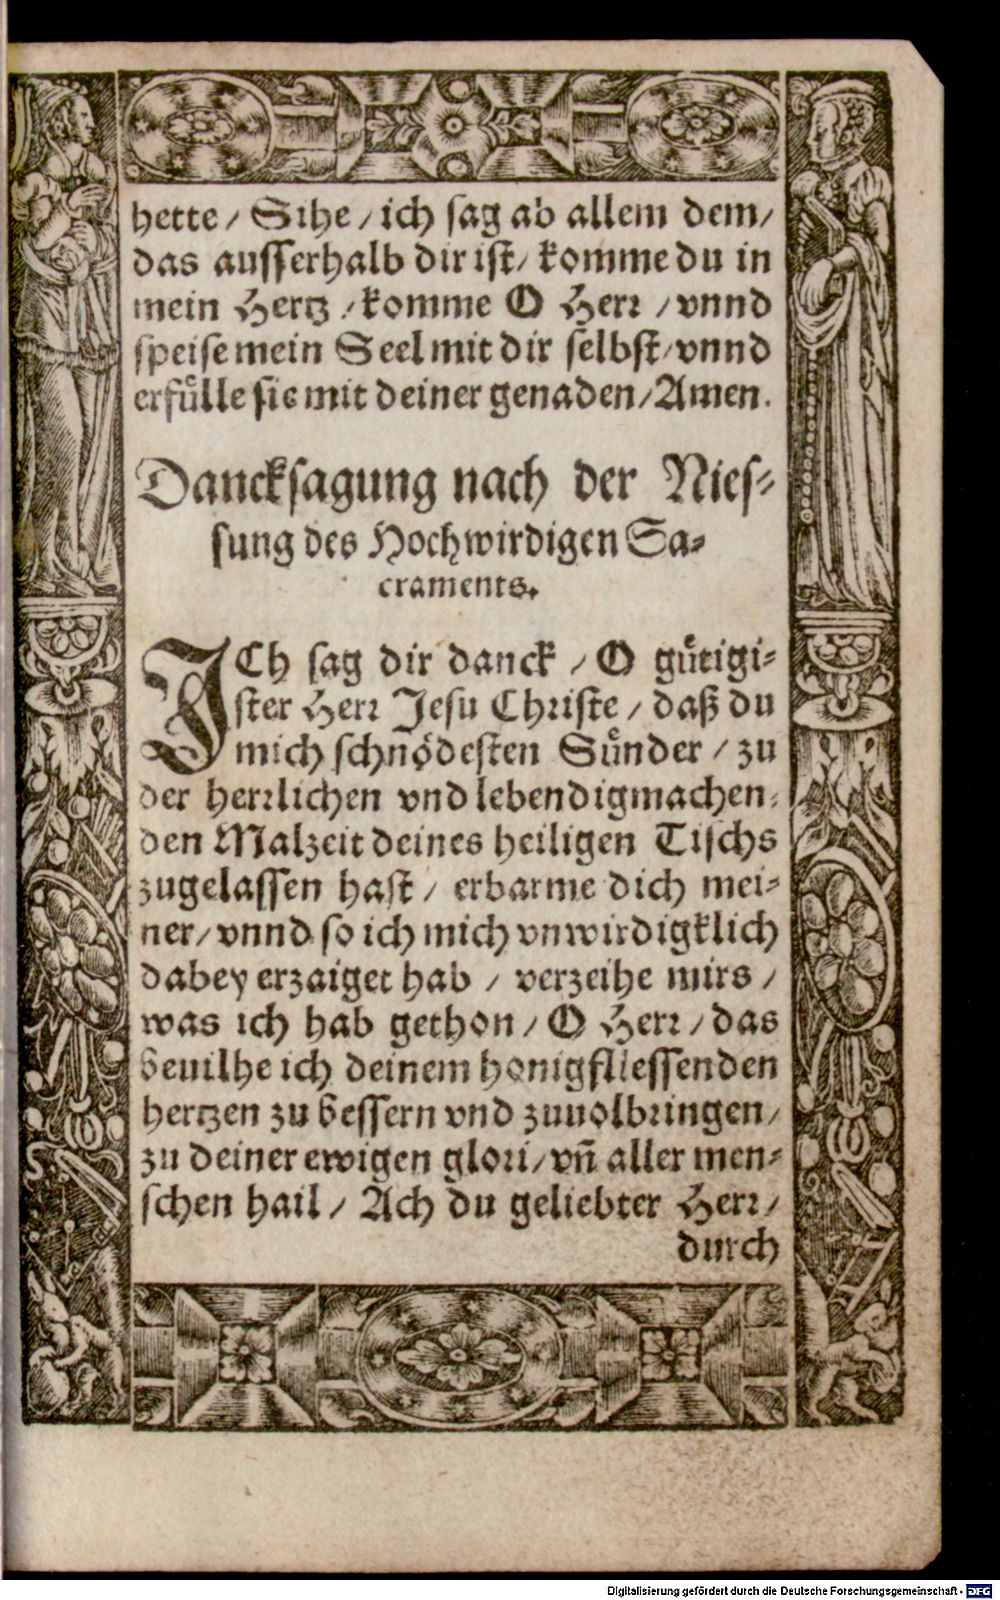 hette / Sihe / ich sag ab allem dem /
das ausserhalb dir ist / komme du in
mein Hertz / komme O Herr / vnnd
speise mein Seel mit dir selbst / vnnd
erfuͤlle sie mit deiner genaden / Amen.
Dancksagung nach der Nies⸗
sung des Hochwirdigen Sa⸗
craments.
ICh sag dir danck / O guͤtigi⸗
ster Herr Jesu Christe / daß du
mich schnoͤdesten Suͤnder / zu
der herrlichen vnd lebendigmachen⸗
den Malzeit deines heiligen Tischs
zugelassen hast / erbarme dich mei⸗
ner / vnnd so ich mich vnwirdigklich
dabey erzaiget hab / verzeihe mirs /
was ich hab gethon / O Herr / das
beuilhe ich deinem honigfliessenden
hertzen zu bessern vnd zuuolbringen /
zu deiner ewigen glori / vñ aller men⸗
schen hail / Ach du geliebter Herr /
durch
Digitalisierung gefördert durch die Deutsche Forschungsgemeinschaft - DFG